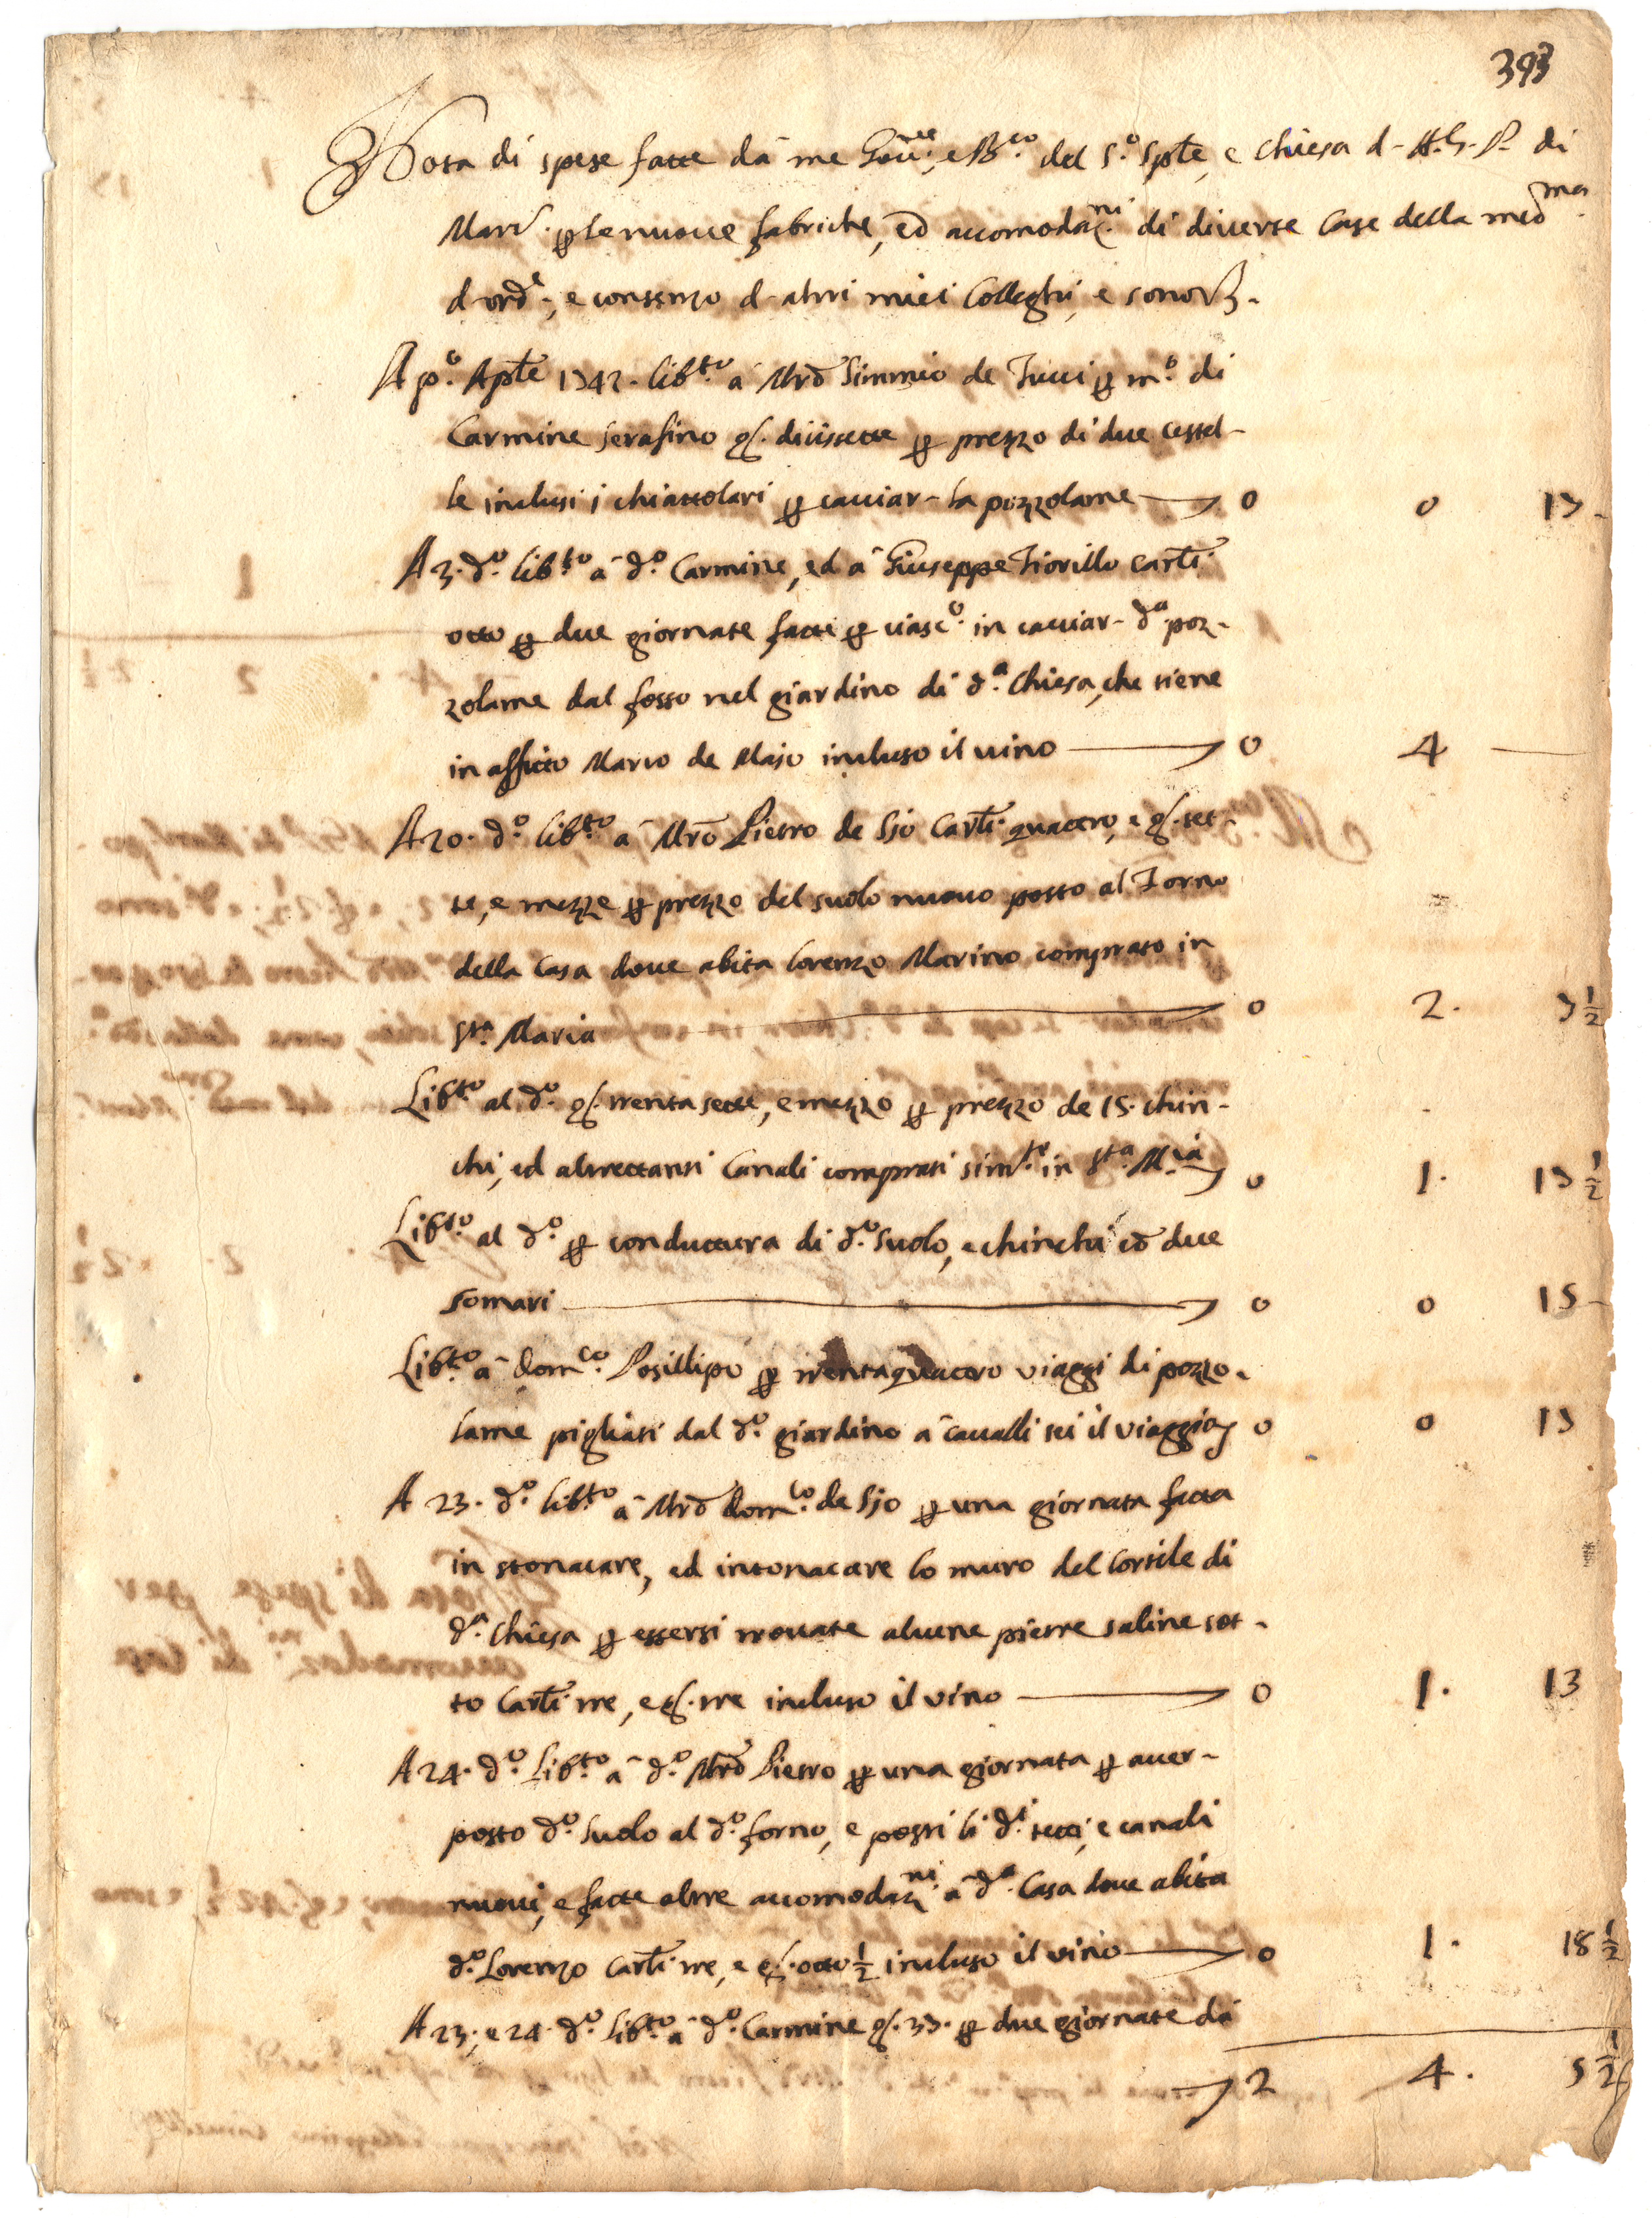 393
Nota di spese fatte dà me Gov.re, e B.co del S.o Spte, e Chiesa d- A.G.P. di
Marc. p le nuove fabriche, ed accomodaz.ni di diverse Case della med.ma
d-ord.e, e consenzo d-altri miei Colleghi, e sono V3.
A p.o Aple 1742. lib.to à Mrõ Simmio de Iucci p m.o di
Carmine Serafino g. diissette p prezzo di due cestel-
le inclusi i chiattolari p cacciar- la pozzolame 0 0 17-
A 3. d.o lib.to à d.o Carmine, ed à Giuseppe Fiorillo Carli.
otto p due giornate fatti p ciasc.o in cacciar- d.a poz-
zolame dal fosso nel giardino di d.a Chiesa, che tiene
in affitto Marco de Maso incluso il vino 0 4
A 20. d.o lib.to à Mrõ Pietro de Sjo Carli. quattro, e g. set-
te, e mezze p prezzo del suolo nuovo posto al Forno
della Casa dove abita Lorenzo Marino comprato in
S.ta Maria 0 2. 7 1/2
Lib.to al d.o g. trentasette, e mezzo p prezzo de 15. chin-
chi, ed altrettanti Canali comprati sim.te in S.ta M.ia 0 1. 17 1/2
Lib.to al d.o p conduttura di d.o Suolo, e chinchi cõ due
somari 0 0 15
Lib.to à Dom.co Posillipo p trentaquattro viaggi di pozzo-
lame pigliati dal d.o giardino à cavalli sei il viaggio 0 0 17
A 23. d.o lib.to à Mrõ Dom.co de Sjo p una giornata fatta
in stonacare, ed intonacare lo muro del Cortile di
d.a Chiesa p essersi trovate alcune pietre saline sot-
to Carli. tre, e g. tre incluso il vino 0 1. 13
A 24. d.o Lib.to à d.o Mrõ Pietro p una giornata p aver-
posto d.o Suolo al d.o forno, e posti li d.i tetti, e canali
nuovi, e fatte altre accomodaz.ni à d.a Casa dove abita
d.o Lorenzo Carli. tre, e g. otto 1/2 incluso il vino 0 1. 18 1/2
A 23, e 24. d.o lib.to à d.o Carmine g. 37. p due giornate dà
2 4. 5 1/2